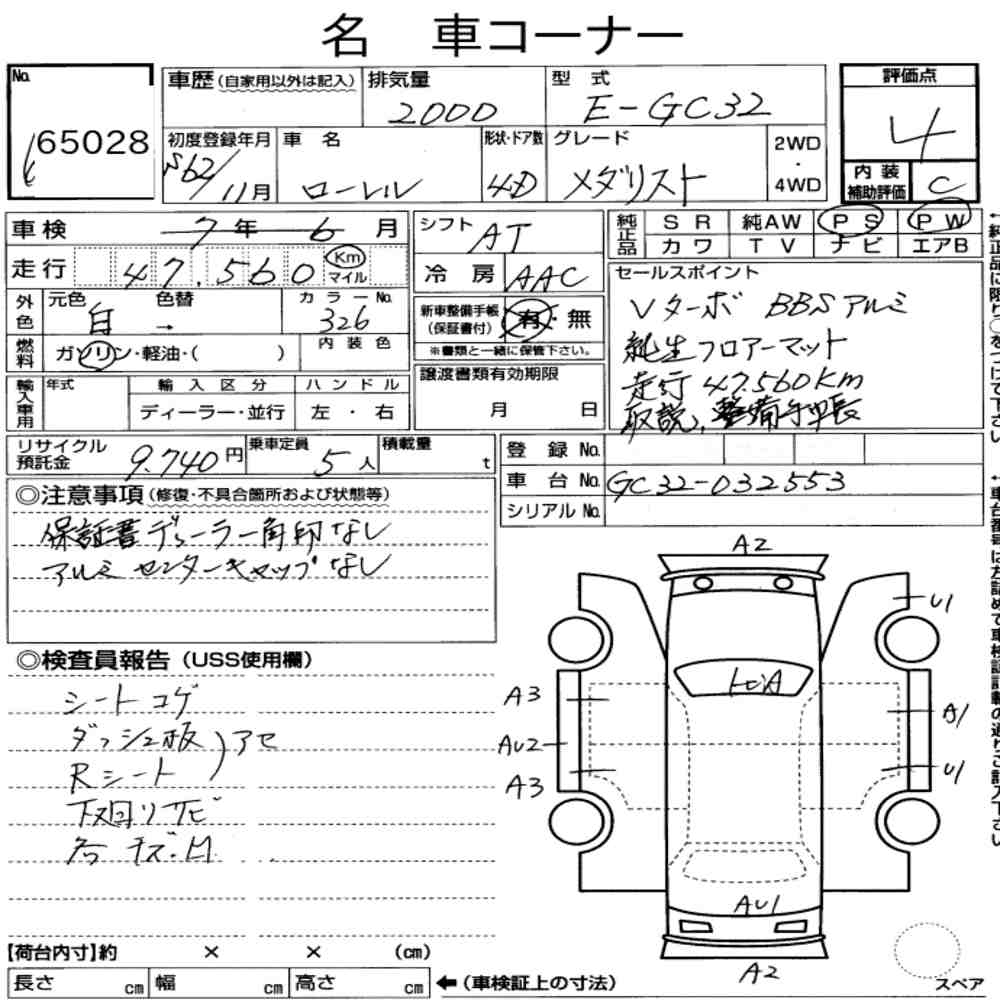 名 車コーナー
No.
65028
車歴(自家用以外は記入)
排気量
2000
型 式
E-GC32
評価点
4
初度登録年月
S62/11月
車 名
ローレル
形状・ドア数
4D
グレード
メダリスト
2WD
・
4WD
内 装
補助評価
C
車検 7年 6月
走行 47,560 Km
マイル
外色
元色
白
色替
→
カラーNo.
326
燃料
ガソリン・軽油・( )
内 装 色
輸入車用
年式
輸 入 区 分
ディーラー・並行
ハ ン ド ル
左 ・ 右
シフト
AT
冷 房
AAC
新車整備手帳
(保証書付)
有・無
※書類と一緒に保管下さい。
譲渡書類有効期限
月 日
純正品
S R
純AW
P S
P W
カワ
T V
ナビ
エアB
セールスポイント
Vターボ BBSアルミ
純生フロアーマット
走行 47.560Km
取説、整備手帳
←純正品に限り○をつけて下さい
リサイクル
預託金
9.740円
乗車定員
5人
積載量
t
登 録 No.
車 台 No.
GC32-032553
シリアル No.
←車台番号は左詰めで車検証記載の通りご記入下さい
◎注意事項(修復・不具合箇所および状態等)
保証書ディーラー角印なし
アルミ センターキャップなし
◎検査員報告(USS使用欄)
シートコゲ
ダッシュ板
Rシート
)アセ
下廻りサビ
キズ・凹
A2
U1
A3
A1
AU2
A3
U1
AU1
A2
スペア
【荷台内寸】約 × × (cm)
長さ cm
幅 cm
高さ cm
←(車検証上の寸法)